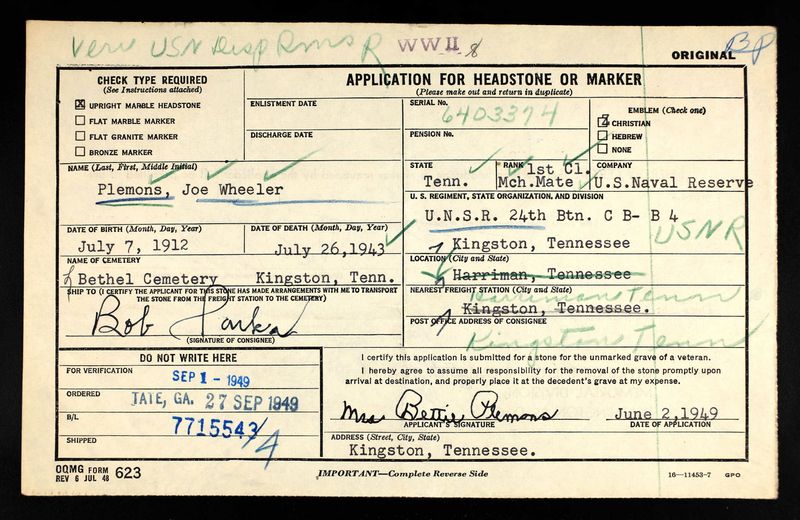 Verv USN Disp Rms R WWII 8
ORIGINAL BP
CHECK TYPE REQUIRED
(See Instructions attached)
☒ UPRIGHT MARBLE HEADSTONE
☐ FLAT MARBLE MARKER
☐ FLAT GRANITE MARKER
☐ BRONZE MARKER
APPLICATION FOR HEADSTONE OR MARKER
(Please make out and return in duplicate)
ENLISTMENT DATE
DISCHARGE DATE
SERIAL No.
6403374
PENSION No.
EMBLEM (Check one)
CHRISTIAN
HEBREW
NONE
NAME (Last, First, Middle Initial)
Plemons, Joe Wheeler
STATE
Tenn.
RANK
1st Cl.
Mch.Mate
COMPANY
U.S.Naval Reserve
U. S. REGIMENT, STATE ORGANIZATION, AND DIVISION
U.N.S.R. 24th Btn. C B- B 4
USNR
DATE OF BIRTH (Month, Day, Year)
July 7, 1912
DATE OF DEATH (Month, Day, Year)
July 26,1943
Kingston, Tennessee
NAME OF CEMETERY
Bethel Cemetery Kingston, Tenn.
LOCATION (City and State)
Harriman, Tennessee
SHIP TO (I CERTIFY THE APPLICANT FOR THIS STONE HAS MADE ARRANGEMENTS WITH ME TO TRANSPORT
THE STONE FROM THE FREIGHT STATION TO THE CEMETERY)
Bob
(SIGNATURE OF CONSIGNEE)
NEAREST FREIGHT STATION (City and State)
Harriman Tenn
Kingston, Tennessee.
POST OFFICE ADDRESS OF CONSIGNEE
Kingston Tenn
DO NOT WRITE HERE
FOR VERIFICATION
SEP 1 - 1949
ORDERED
TATE, GA. 27 SEP 1949
B/L
7715543
4
SHIPPED
I certify this application is submitted for a stone for the unmarked grave of a veteran.
I hereby agree to assume all responsibility for the removal of the stone promptly upon
arrival at destination, and properly place it at the decedent's grave at my expense.
Mrs Bettie Plemons June 2,1949
APPLICANT'S SIGNATURE DATE OF APPLICATION
ADDRESS (Street, City, State)
Kingston, Tennessee.
OQMG FORM 623
REV 6 JUL 48
IMPORTANT—Complete Reverse Side
16—11453-7 GPO